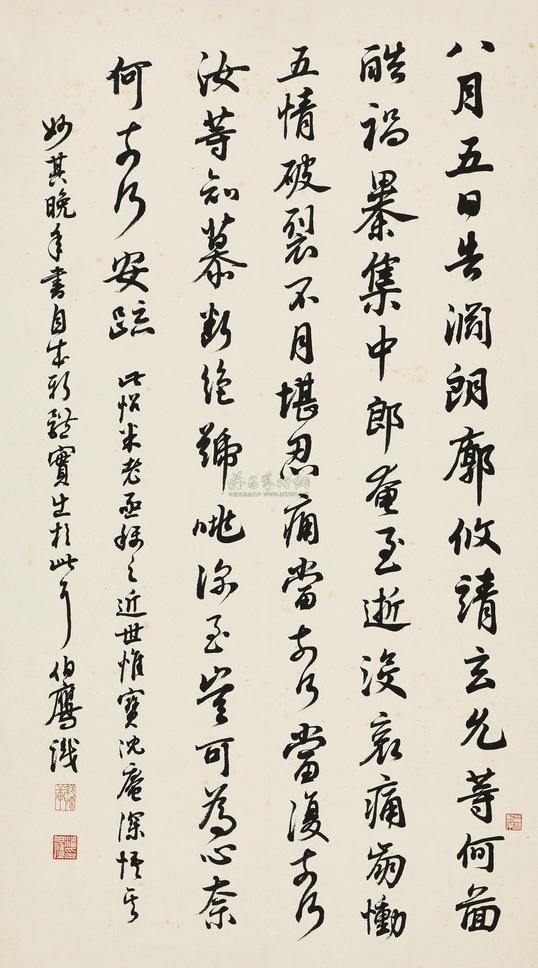 八月五日告淵朗廓攸靖玄允等何啚
酷禍暴集中郎奄至逝沒哀痛崩慟
五情破裂不自堪忍痛當奈何當復奈何
汝等哀慕斷絕號咷深至豈可為心奈
何奈何安疏 此帖米老亟稱之近世惟寶沈庵深悟其
妙其晚年書自成新體實出於此耳 伯鷹識